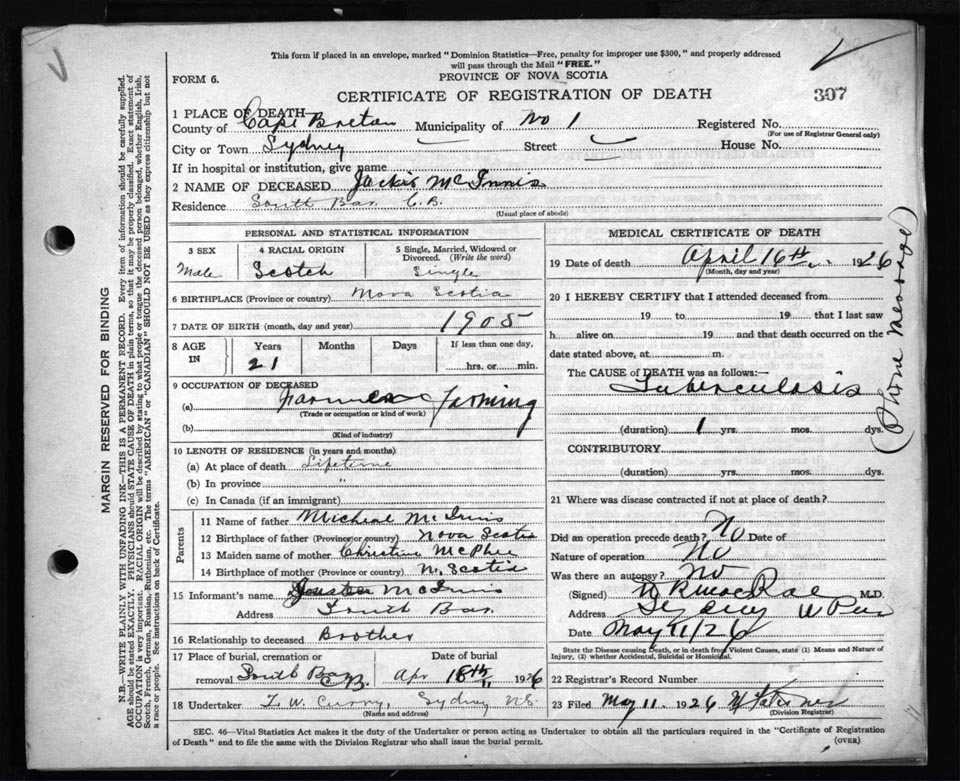 This form if placed in an envelope, marked "Dominion Statistics—Free, penalty for improper use $300," and properly addressed
will pass through the Mail "FREE."
FORM 6.
PROVINCE OF NOVA SCOTIA
CERTIFICATE OF REGISTRATION OF DEATH
397
1 PLACE OF DEATH
County of Cape Breton Municipality of No 1 Registered No.
(For use of Registrar General only)
City or Town Sydney Street House No.
If in hospital or institution, give name
2 NAME OF DECEASED Jackie McInnis
Residence South Bar C.B.
(Usual place of abode)
PERSONAL AND STATISTICAL INFORMATION
3 SEX 4 RACIAL ORIGIN 5 Single, Married, Widowed or Divorced. (Write the word)
Male Scotch Single
6 BIRTHPLACE (Province or country) Nova Scotia
7 DATE OF BIRTH (month, day and year) 1905
8 AGE IN Years Months Days If less than one day,
21 hrs. or min.
9 OCCUPATION OF DECEASED
(a) Farming
(Trade or occupation or kind of work)
(b)
(Kind of industry)
10 LENGTH OF RESIDENCE (in years and months)
(a) At place of death Lifetime
(b) In province "
(c) In Canada (if an immigrant)
Parents
11 Name of father Micheal McInnis
12 Birthplace of father (Province or country) Nova Scotia
13 Maiden name of mother Christine McPhee
14 Birthplace of mother (Province or country) N. Scotia
15 Informant's name McInnis
Address South Bar
16 Relationship to deceased Brother
17 Place of burial, cremation or removal South Bar C.B. Date of burial Apr 18th 1926
18 Undertaker Curry, Sydney N.S.
(Name and address)
MEDICAL CERTIFICATE OF DEATH
19 Date of death April 16th 1926
(Month, day and year)
20 I HEREBY CERTIFY that I attended deceased from
19 to 19 that I last saw
h alive on 19 and that death occurred on the
date stated above, at m.
The CAUSE of DEATH was as follows:—
Tuberculosis
(duration) 1 yrs. mos. dys.
CONTRIBUTORY
(duration) yrs. mos. dys.
21 Where was disease contracted if not at place of death?
Did an operation precede death? No Date of
Nature of operation No
Was there an autopsy? No
(Signed) M.D.
Address Sydney
Date May 11/26
State the Disease causing Death, or in death from Violent Causes, state (1) Means and Nature of
Injury, (2) whether Accidental, Suicidal or Homicidal.
22 Registrar's Record Number
23 Filed May 11 1926
(Division Registrar)
SEC. 46—Vital Statistics Act makes it the duty of the Undertaker or person acting as Undertaker to obtain all the particulars required in the "Certificate of Registration
of Death" and to file the same with the Division Registrar who shall issue the burial permit.
(OVER)
MARGIN RESERVED FOR BINDING
N.B.—WRITE PLAINLY WITH UNFADING INK—THIS IS A PERMANENT RECORD. Every item of information should be carefully supplied.
AGE should be stated EXACTLY. PHYSICIANS should STATE CAUSE OF DEATH in plain terms, so that it may be properly classified. Exact statement of
OCCUPATION is very important. RACIAL ORIGIN will be described by stating to what people or tongue the deceased person belonged, whether English, Irish,
Scotch, French, German, Russian, Ruthenian, etc. The terms "AMERICAN" or "CANADIAN" SHOULD NOT BE USED as they express citizenship but not
a race or people. See instructions on back of Certificate.
(Phone Message)